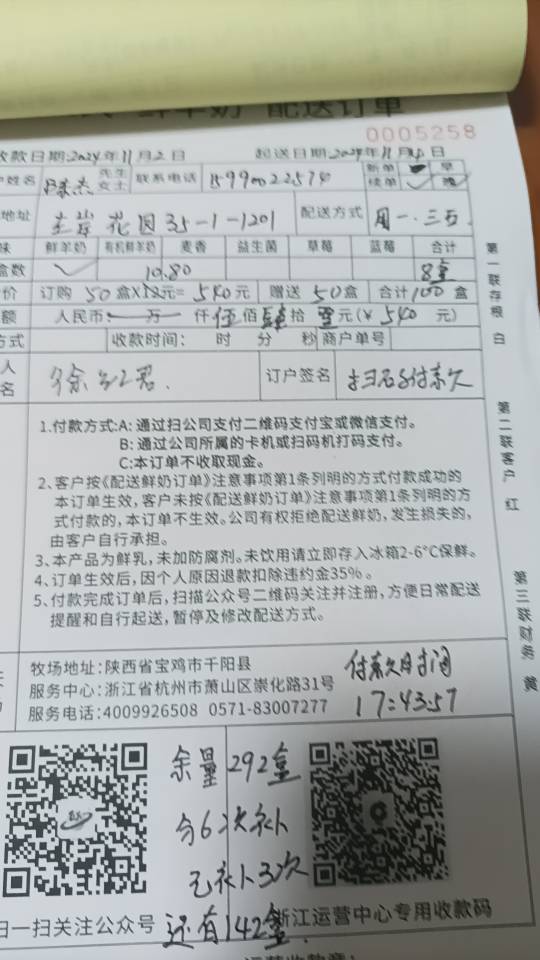 鲜羊奶 配送订单
0005258
收款日期:2024年11月2日 起送日期:2024年11月4日
户姓名 陈杰 先生 女士 联系电话 15990022574 新单 续单 早 晚
地址 花园35-1-1201 配送方式 周一.三.五.
味 鲜羊奶 有机鲜羊奶 麦香 益生菌 草莓 蓝莓 合计
盒数 10.80 8盒
价 订购50盒X 元=540元 赠送50盒 合计100盒
额 人民币: 万 仟伍佰肆拾 元(¥540元)
方式 收款时间: 时 分 秒 商户单号
人 名 徐 君. 订户签名 扫码付款
1.付款方式:A: 通过扫公司支付二维码支付宝或微信支付。
B: 通过公司所属的卡机或扫码机打码支付。
C:本订单不收取现金。
2、客户按《配送鲜奶订单》注意事项第1条列明的方式付款成功的
本订单生效,客户未按《配送鲜奶订单》注意事项第1条列明的方
式付款的,本订单不生效。公司有权拒绝配送鲜奶,发生损失的,
由客户自行承担。
3、本产品为鲜乳,未加防腐剂。未饮用请立即存入冰箱2-6°C保鲜。
4、订单生效后,因个人原因退款扣除违约金35%。
5、付款完成订单后,扫描公众号二维码关注并注册,方便日常配送
提醒和自行起送,暂停及修改配送方式。
牧场地址:陕西省宝鸡市千阳县
服务中心:浙江省杭州市萧山区崇化路31号
服务电话:4009926508 0571-83007277
付款时间
17:43:57
余量292盒
分6次补
已补3次
还有142盒.
扫一扫关注公众号
浙江运营中心专用收款码
第一联存根 白
第二联客户 红
第三联财务 黄